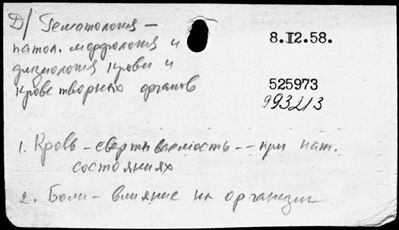 Д/ Гематология –
патол. морфология и
физиология крови и
кроветворных органов
8.II.58.
525973
993213
1. Кровь – свертываемость – при пат.
состояниях
2. Боли – влияние на организм